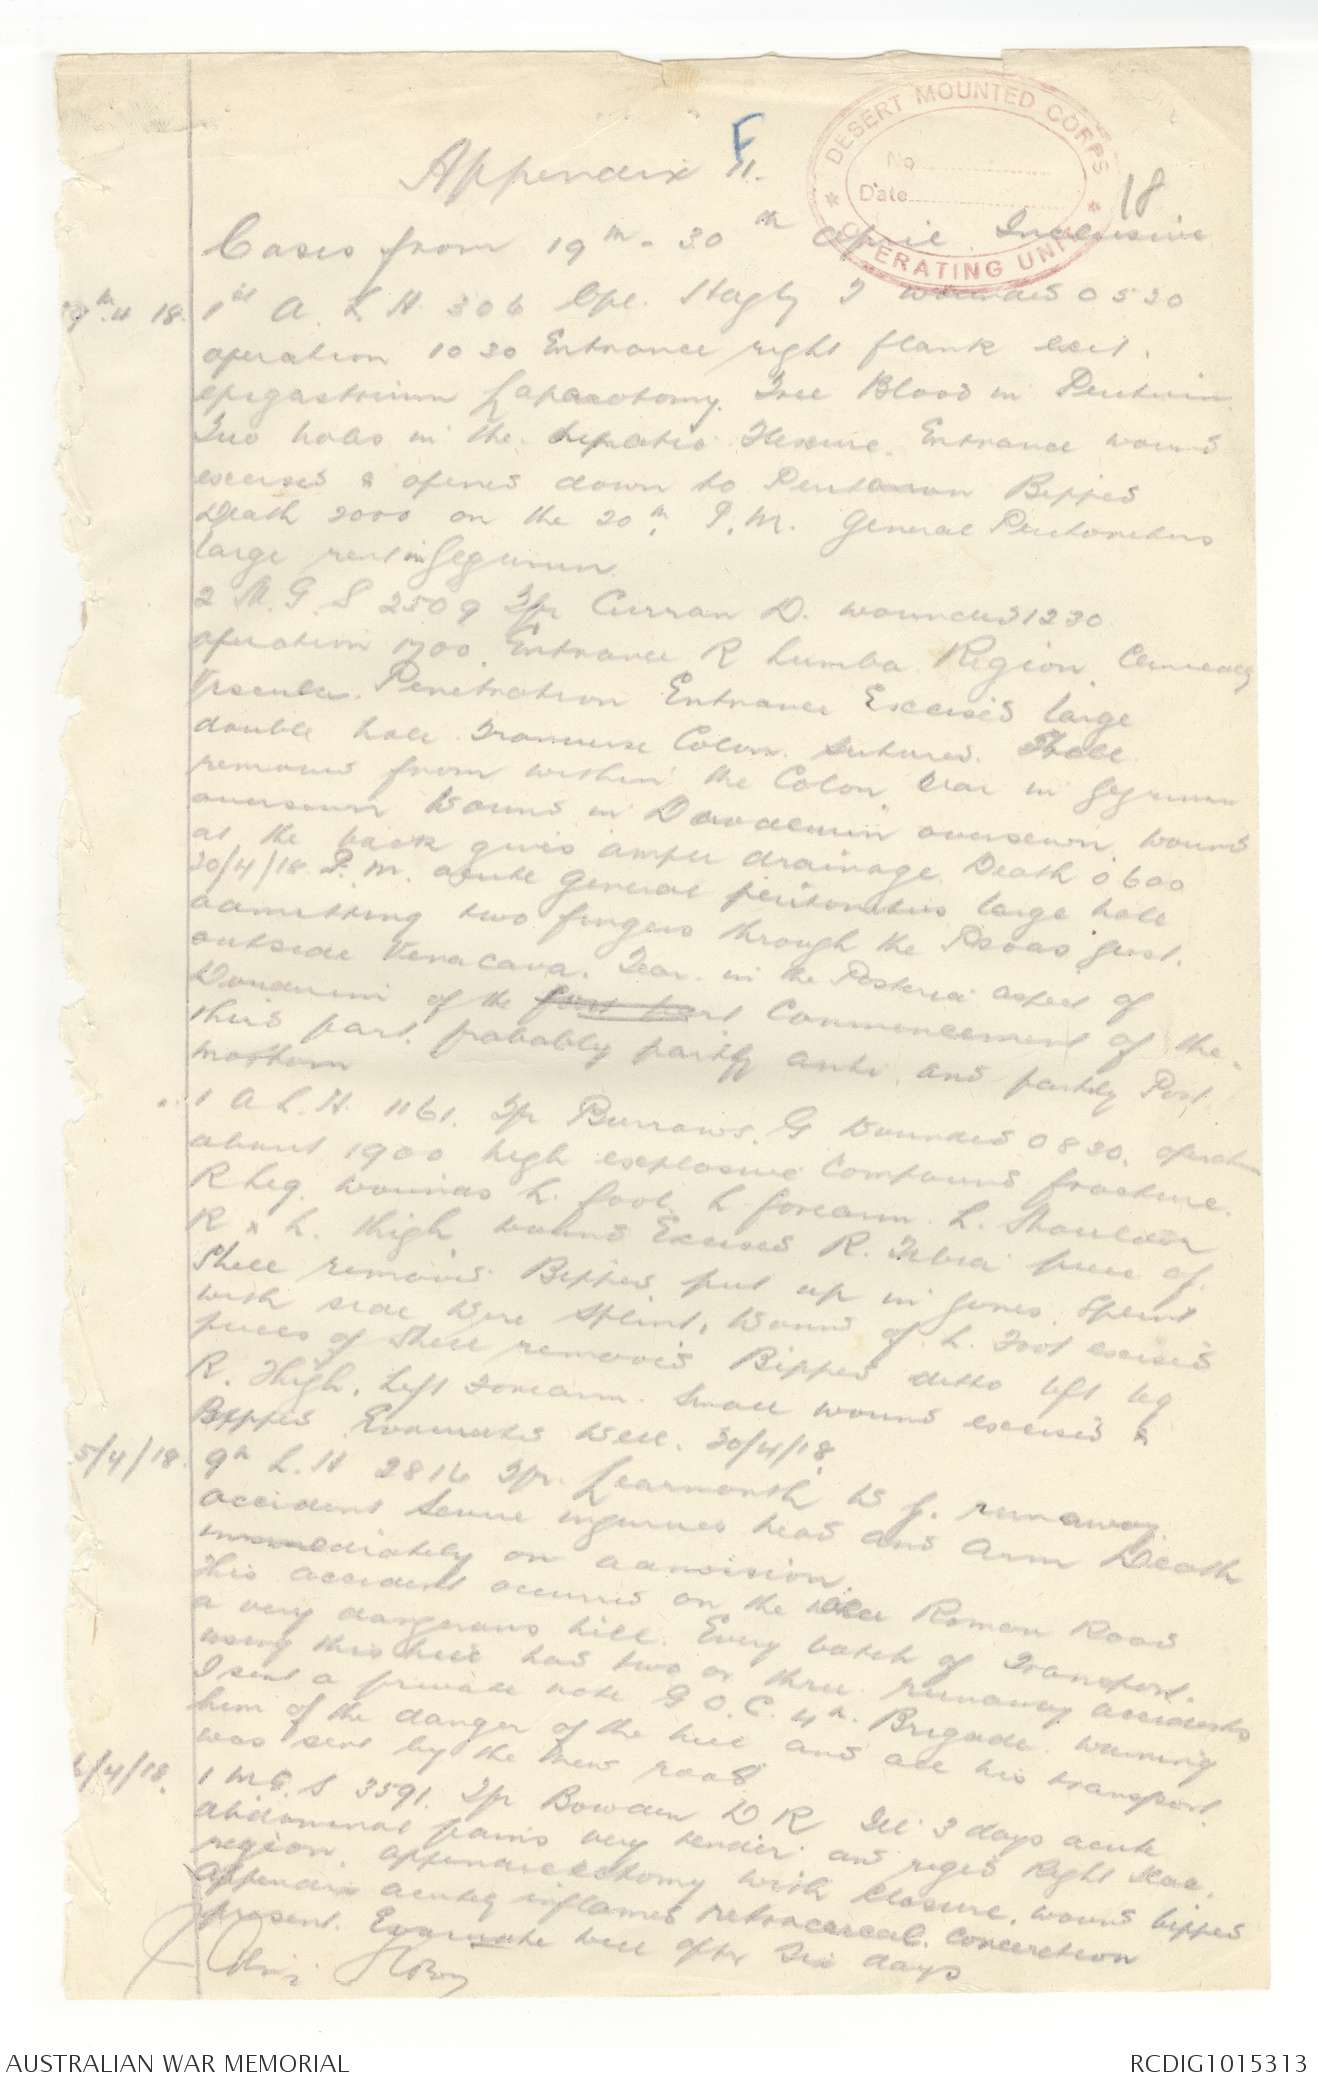 DESERT MOUNTED CORPS
No
Date
OPERATING UNIT
18
F
Appendix 11.
Cases from 19th - 30th April Inclusive
19th 4 18. 1st A. L. H. 306 Cpl. Hagly J wounded 0530
operation 1030 Entrance right flank exit.
epigastrium Laparotomy. Free Blood in Peritoin
Two holes in the hepatic Flexure. Entrance wound
excised & opened down to Peritoneum Bipped
Death 2000 on the 20th. P.M. General Peritonitis
large rent in Jejunum
2 M. G. S 2509 Tpr Curran D. wounded 1230
operation 1700. Entrance R Lumba Region.
Penetration Entrance Excised large
double hole Transverse Colon. Sutured. Shell
removed from within the Colon. tear in Jejunum
oversewn Wound in Duodenum oversewn. wound
at the back gives ample drainage Death 0600
20/4/18 P.M. acute general peritonitis large hole
admitting two fingers through the Psoas just.
outside Venacava. Tear in the Posterior aspect of
Duodenum of the first part Commencement of the
third part. probably partly anti and partly Post
mortem
1 A L. H. 1161. Tpr Burrows. G Wounded 0830. operation
about 1900 high explosive Compound fracture.
R leg. wounds L. foot. L forearm. L. Shoulder
R & L. thigh. wound Excised R. Tibia piece of
Shell removed. Bipped. put up in Jones Splint
with side wire Splint. Wound of L. Foot excised
pieces of Shell removed Bipped ditto left leg
R. Thigh. Left Forearm. Small wound excised &
Bipped Evacuated Well. 30/4/18
5/4/18. 9th L. H 2816 Tpr. Learmonth W J. runaway
accident Severe injuries head and Arm Death
immediately on admission.
This accident occurred on the Roman Road
a very dangerous hill. Every batch of Transport.
using this hill has two or three runaway accidents
I sent a private note G O. C. 4th. Brigade warning
him of the danger of the hill and all his transport
was sent by the new road
6/4/18. 1 M G S 3591. Tpr Bowden D R Ill 3 days acute
abdominal pains very tender and rigid Right Iliac.
region. appendicectomy with closure. wound bipped
Appendix acutely inflamed retrocaecal. Concretion
present. Evacuate well after Six days